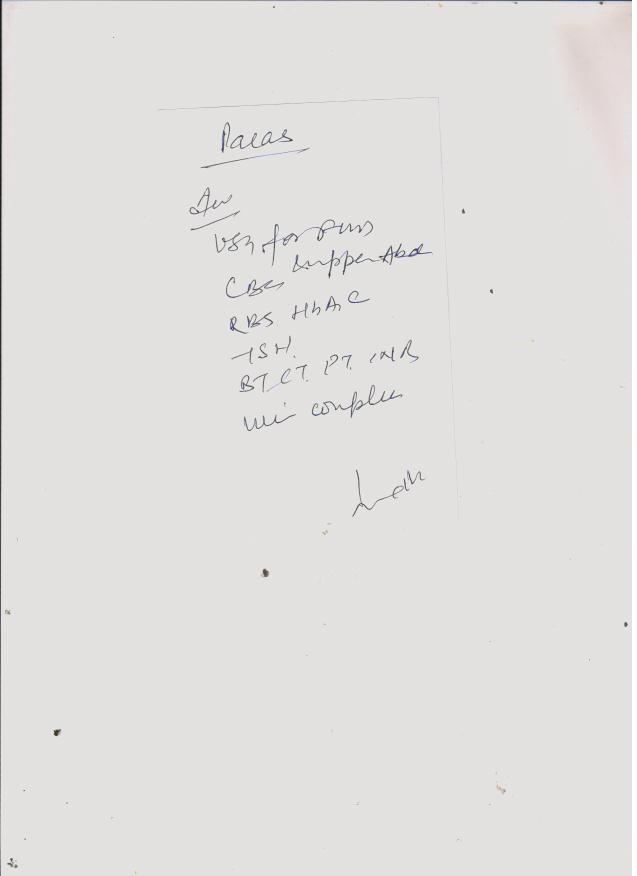 Paras
Adv
USG for
& upper Abd
CBC
RBS HbA1C
TSH
BT CT PT INR
complete